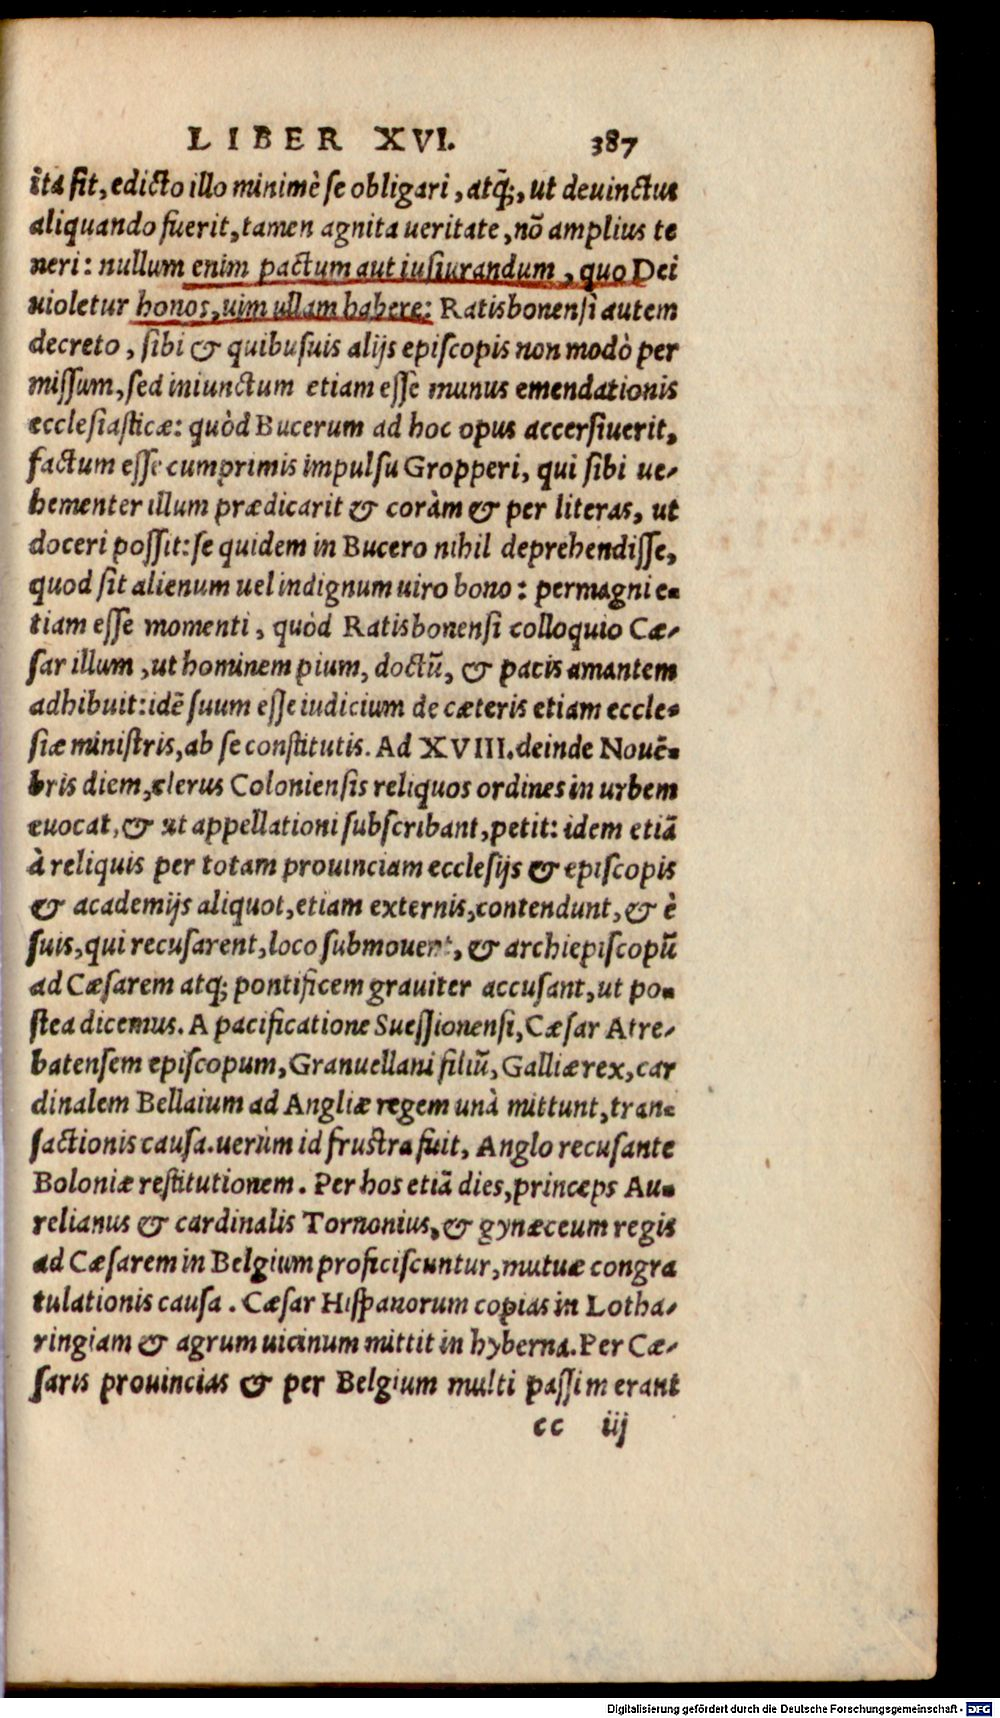 LIBER XVI. 387
ita sit, edicto illo minimè se obligari, atq́;, ut deuinctus
aliquando fuerit, tamen agnita ueritate, nõ amplius te
neri: nullum enim pactum aut iusiurandum, quo Dei
uioletur honos, uim ullam habere: Ratisbonensi autem
decreto, sibi & quibusuis alijs episcopis non modò per
missum, sed iniunctum etiam esse munus emendationis
ecclesiasticæ: quòd Bucerum ad hoc opus accersiuerit,
factum esse cumprimis impulsu Gropperi, qui sibi ue-
hementer illum prædicarit & coràm & per literas, ut
doceri possit: se quidem in Bucero nihil deprehendisse,
quod sit alienum uel indignum uiro bono: permagni e-
tiam esse momenti, quòd Ratisbonensi colloquio Cæ-
sar illum, ut hominem pium, doctũ, & pacis amantem
adhibuit: idẽ suum esse iudicium de cæteris etiam eccle-
siæ ministris, ab se constitutis. Ad XVIII. deinde Nouẽ-
bris diem, clerus Coloniensis reliquos ordines in urbem
euocat, & ut appellationi subscribant, petit: idem etiã
à reliquis per totam prouinciam ecclesijs & episcopis
& academijs aliquot, etiam externis, contendunt, & è
suis, qui recusarent, loco submouent, & archiepiscopũ
ad Cæsarem atq; pontificem grauiter accusant, ut po-
stea dicemus. A pacificatione Suessionensi, Cæsar Atre-
batensem episcopum, Granuellani filiũ, Galliæ rex, car
dinalem Bellaium ad Angliæ regem unà mittunt, tran-
sactionis causa. uerùm id frustra fuit, Anglo recusante
Boloniæ restitutionem. Per hos etiã dies, princeps Au-
relianus & cardinalis Tornonius, & gynæceum regis
ad Cæsarem in Belgium proficiscuntur, mutuæ congra
tulationis causa. Cæsar Hispanorum copias in Lotha-
ringiam & agrum uicinum mittit in hyberna. Per Cæ-
saris prouincias & per Belgium multi passim erant
cc iij
Digitalisierung gefördert durch die Deutsche Forschungsgemeinschaft - DFG